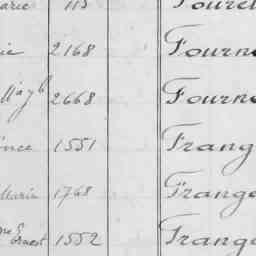 arie 113 Fourn
ie 2168 Fourn
2668 Fourn
ence 1551 Frang
Marie 1768 Frange
Ernest 1552 Frange